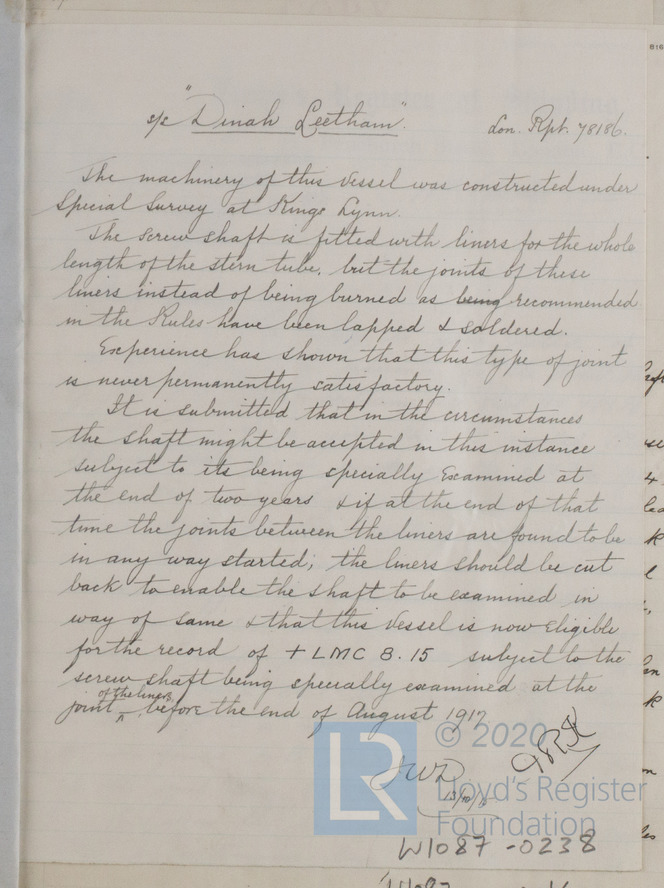 s/s "Dinah Leetham". Lon. Rpt. 78186.
The machinery of this vessel was constructed under
Special Survey at Kings Lynn.
The screw shaft is fitted with liners for the whole
length of the stern tube, but the joints of these
liners instead of being burned as being recommended
in the Rules have been lapped & soldered.
Experience has shown that this type of joint
is never permanently satisfactory.
It is submitted that in the circumstances
the shaft might be accepted in this instance
subject to its being specially examined at
the end of two years & if at the end of that
time the joints between the liners are found to be
in any way started, the liners should be cut
back to enable the shaft to be examined in
way of same & that this Vessel is now eligible
for the record of + LMC 8.15 subject to the
screw shaft being specially examined at the
joint of the liners before the end of August 1917
© 2020
LR
Lloyd's Register
Foundation
W1087-0238